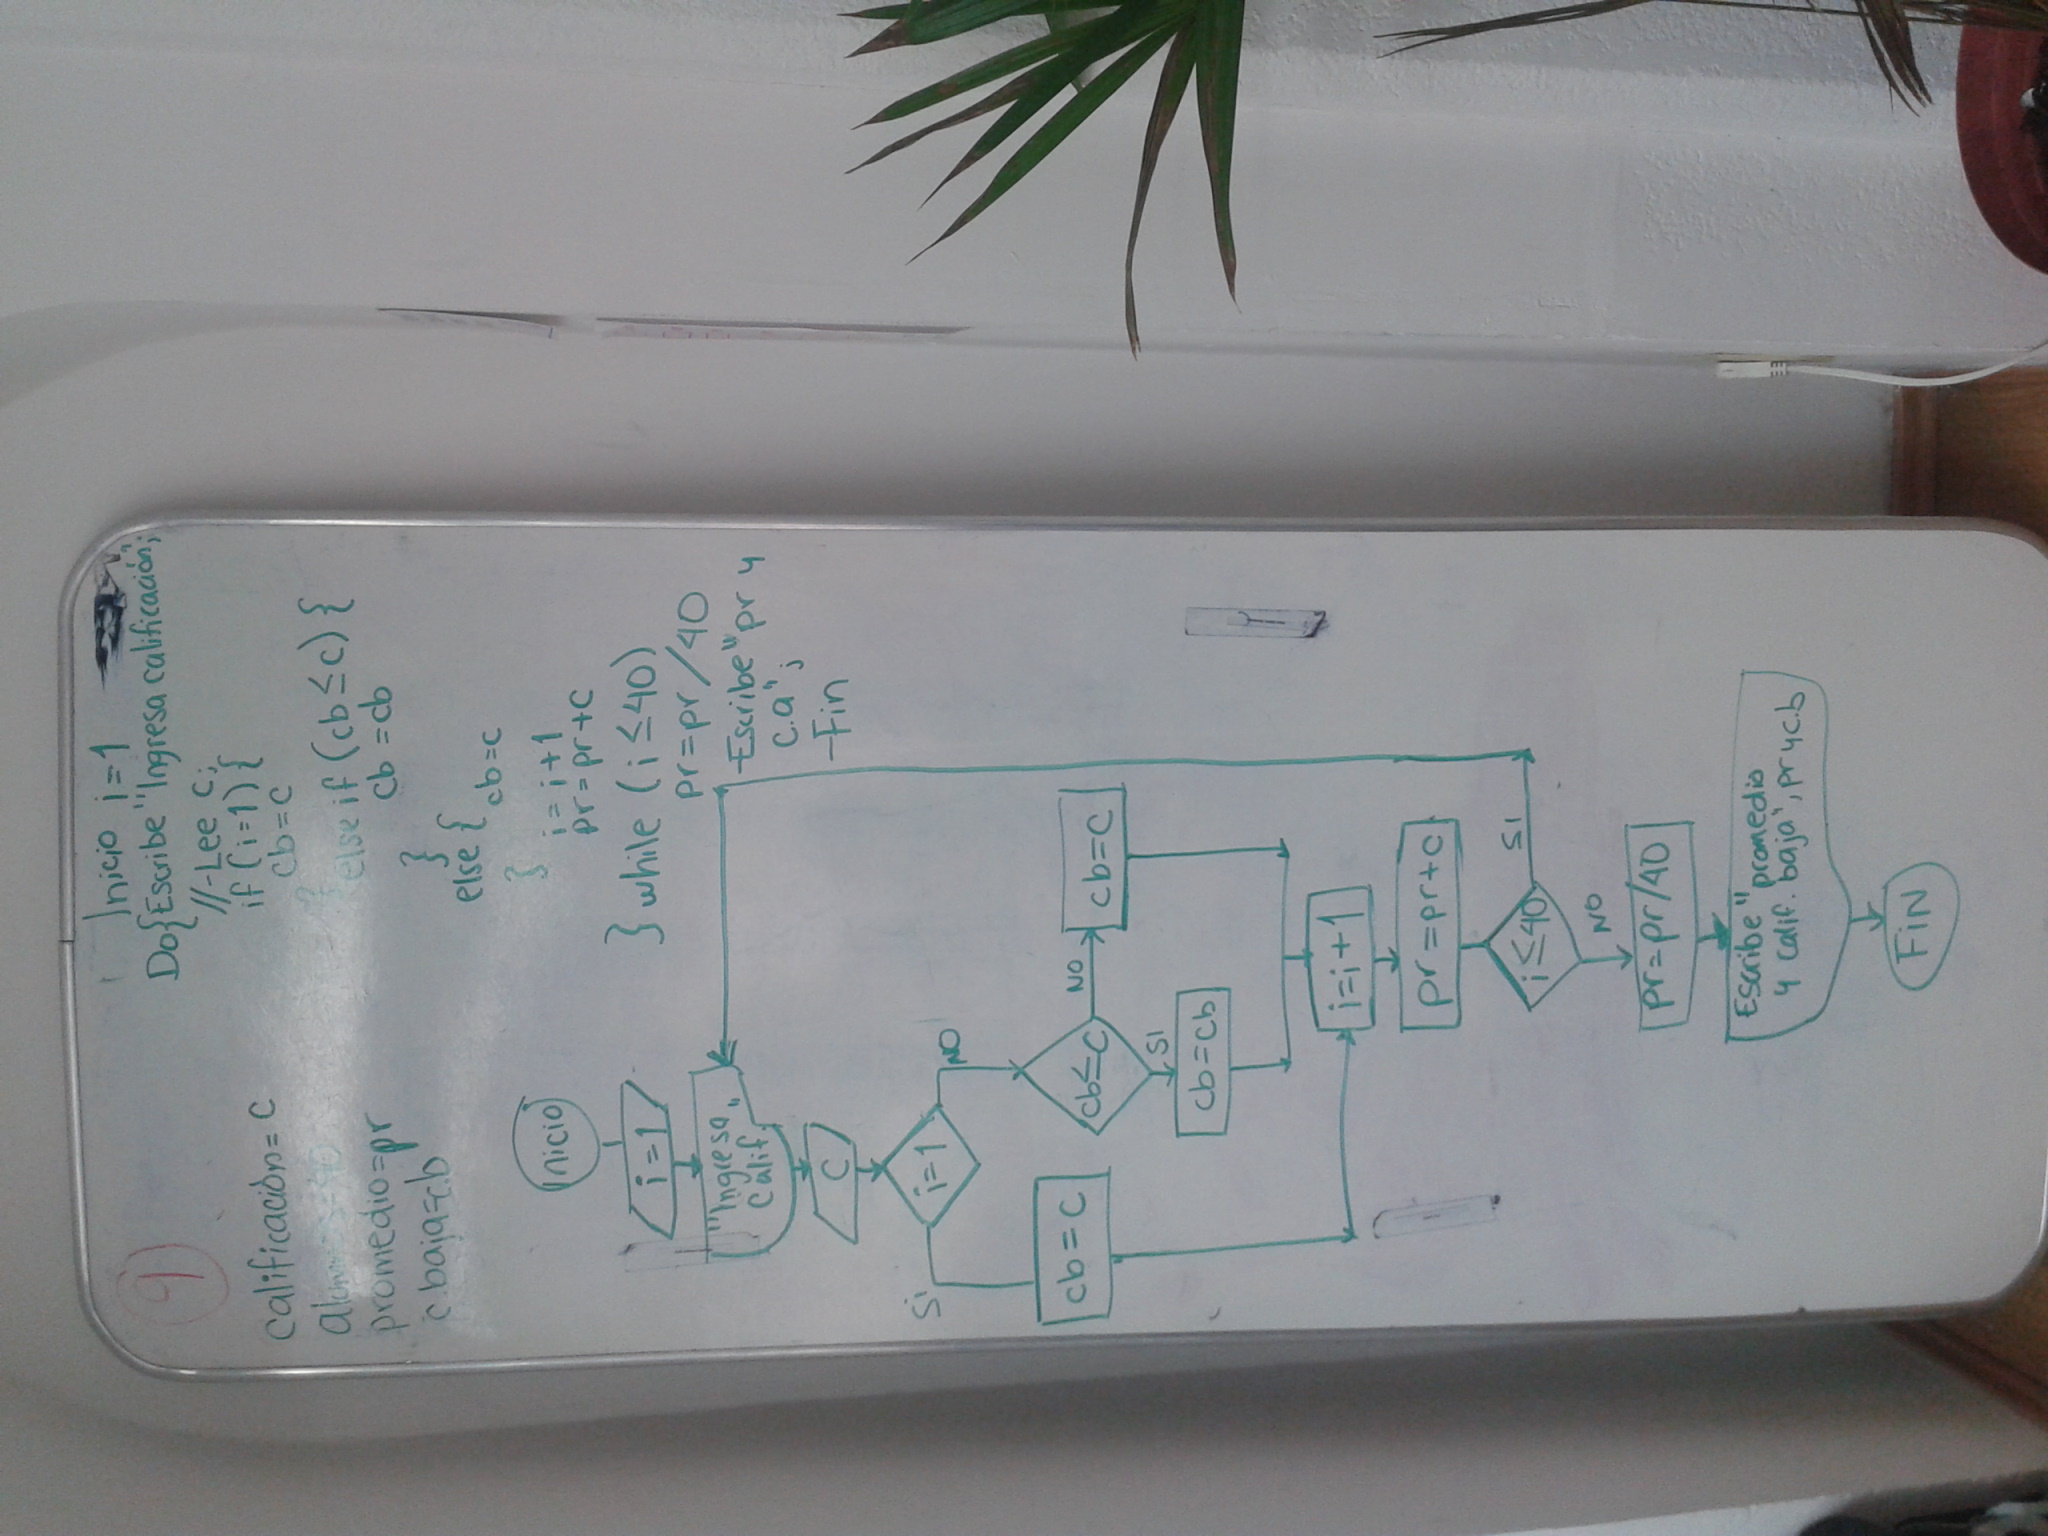 9
calificación= c
alumnos=40
promedio=pr
c.baja=c.b
Inicio i=1
Do{Escribe "Ingresa calificación";
//-Lee c;
if (i=1) {
cb=c
}
else if (cb≤c) {
cb =cb
}
else {
cb=c
}
i= i+1
pr=pr+c
} while (i≤40)
pr=pr/40
-Escribe "pr y
c.a";
-Fin
Inicio
i=1
"Ingresa
Calif."
C
i=1
Si
NO
cb=c
cb≤c
NO
cb=c
SI
cb=cb
i=i+1
pr=pr+c
i≤40
SI
NO
pr=pr/40
Escribe "promedio
y calif. baja", pr y c.b
FiN